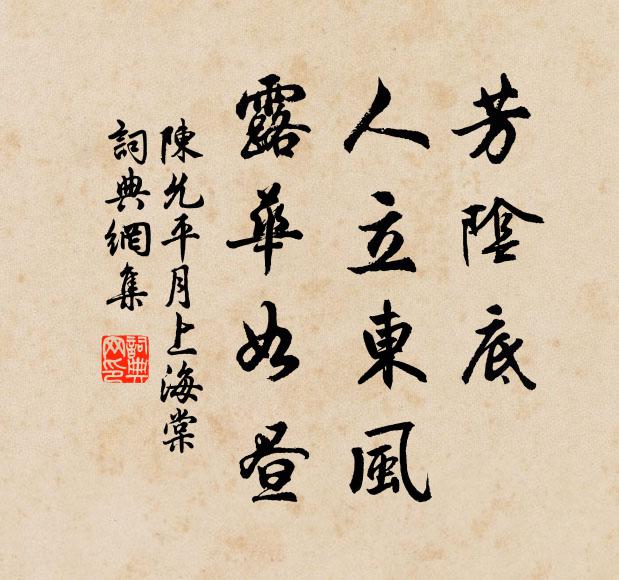 芳陰底
人立東風
露華如昼
陳允平月上海棠
詞典網集
詞典網印